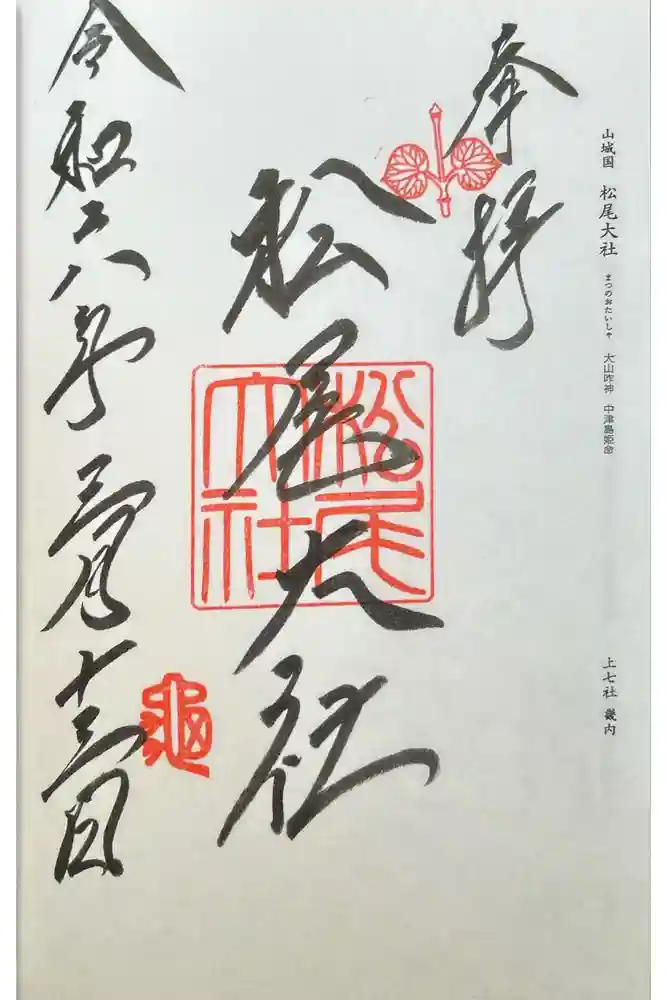 山城国 松尾大社 まつのおたいしゃ 大山咋神 中津島姫命
上七社 畿内
奉拝
松尾大社
松尾
大社
令和六年三月十三日